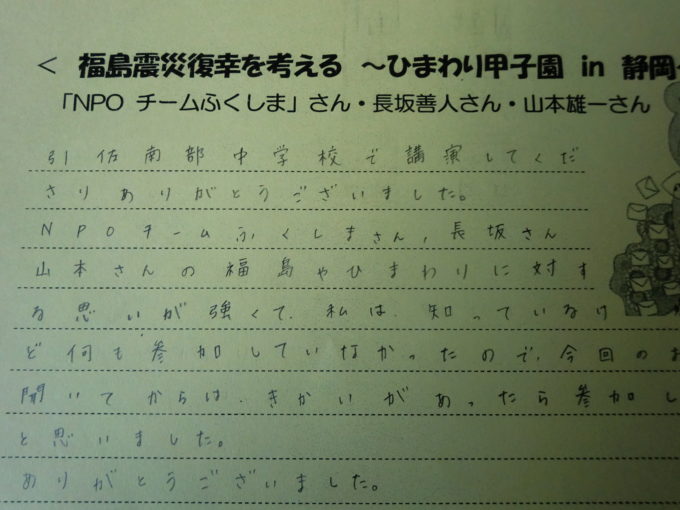 < 福島震災復幸を考える ～ひまわり甲子園 in 静岡
「NPO チームふくしま」さん・長坂善人さん・山本雄一さん
引佐南部中学校で講演してくだ
さりありがとうございました。
NPOチームふくしまさん,長坂さん
山本さんの福島やひまわりに対す
る思いが強くて、私は、知っているけ
ど何も参加していなかったので、今回のお
聞いてからは、きかいがあったら参加し
と思いました。
ありがとうございました。